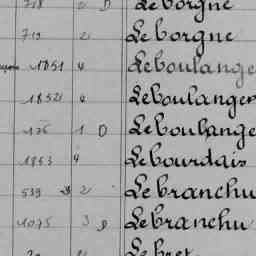 718 2 D Leborgne
719 2 Leborgne
1851 4 Leboulange
1852 4 Leboulanger
176 1 D Leboulange
1853 4 Lebourdais
539 2 Lebranchu
1075 3 D Lebranchu
Lebret